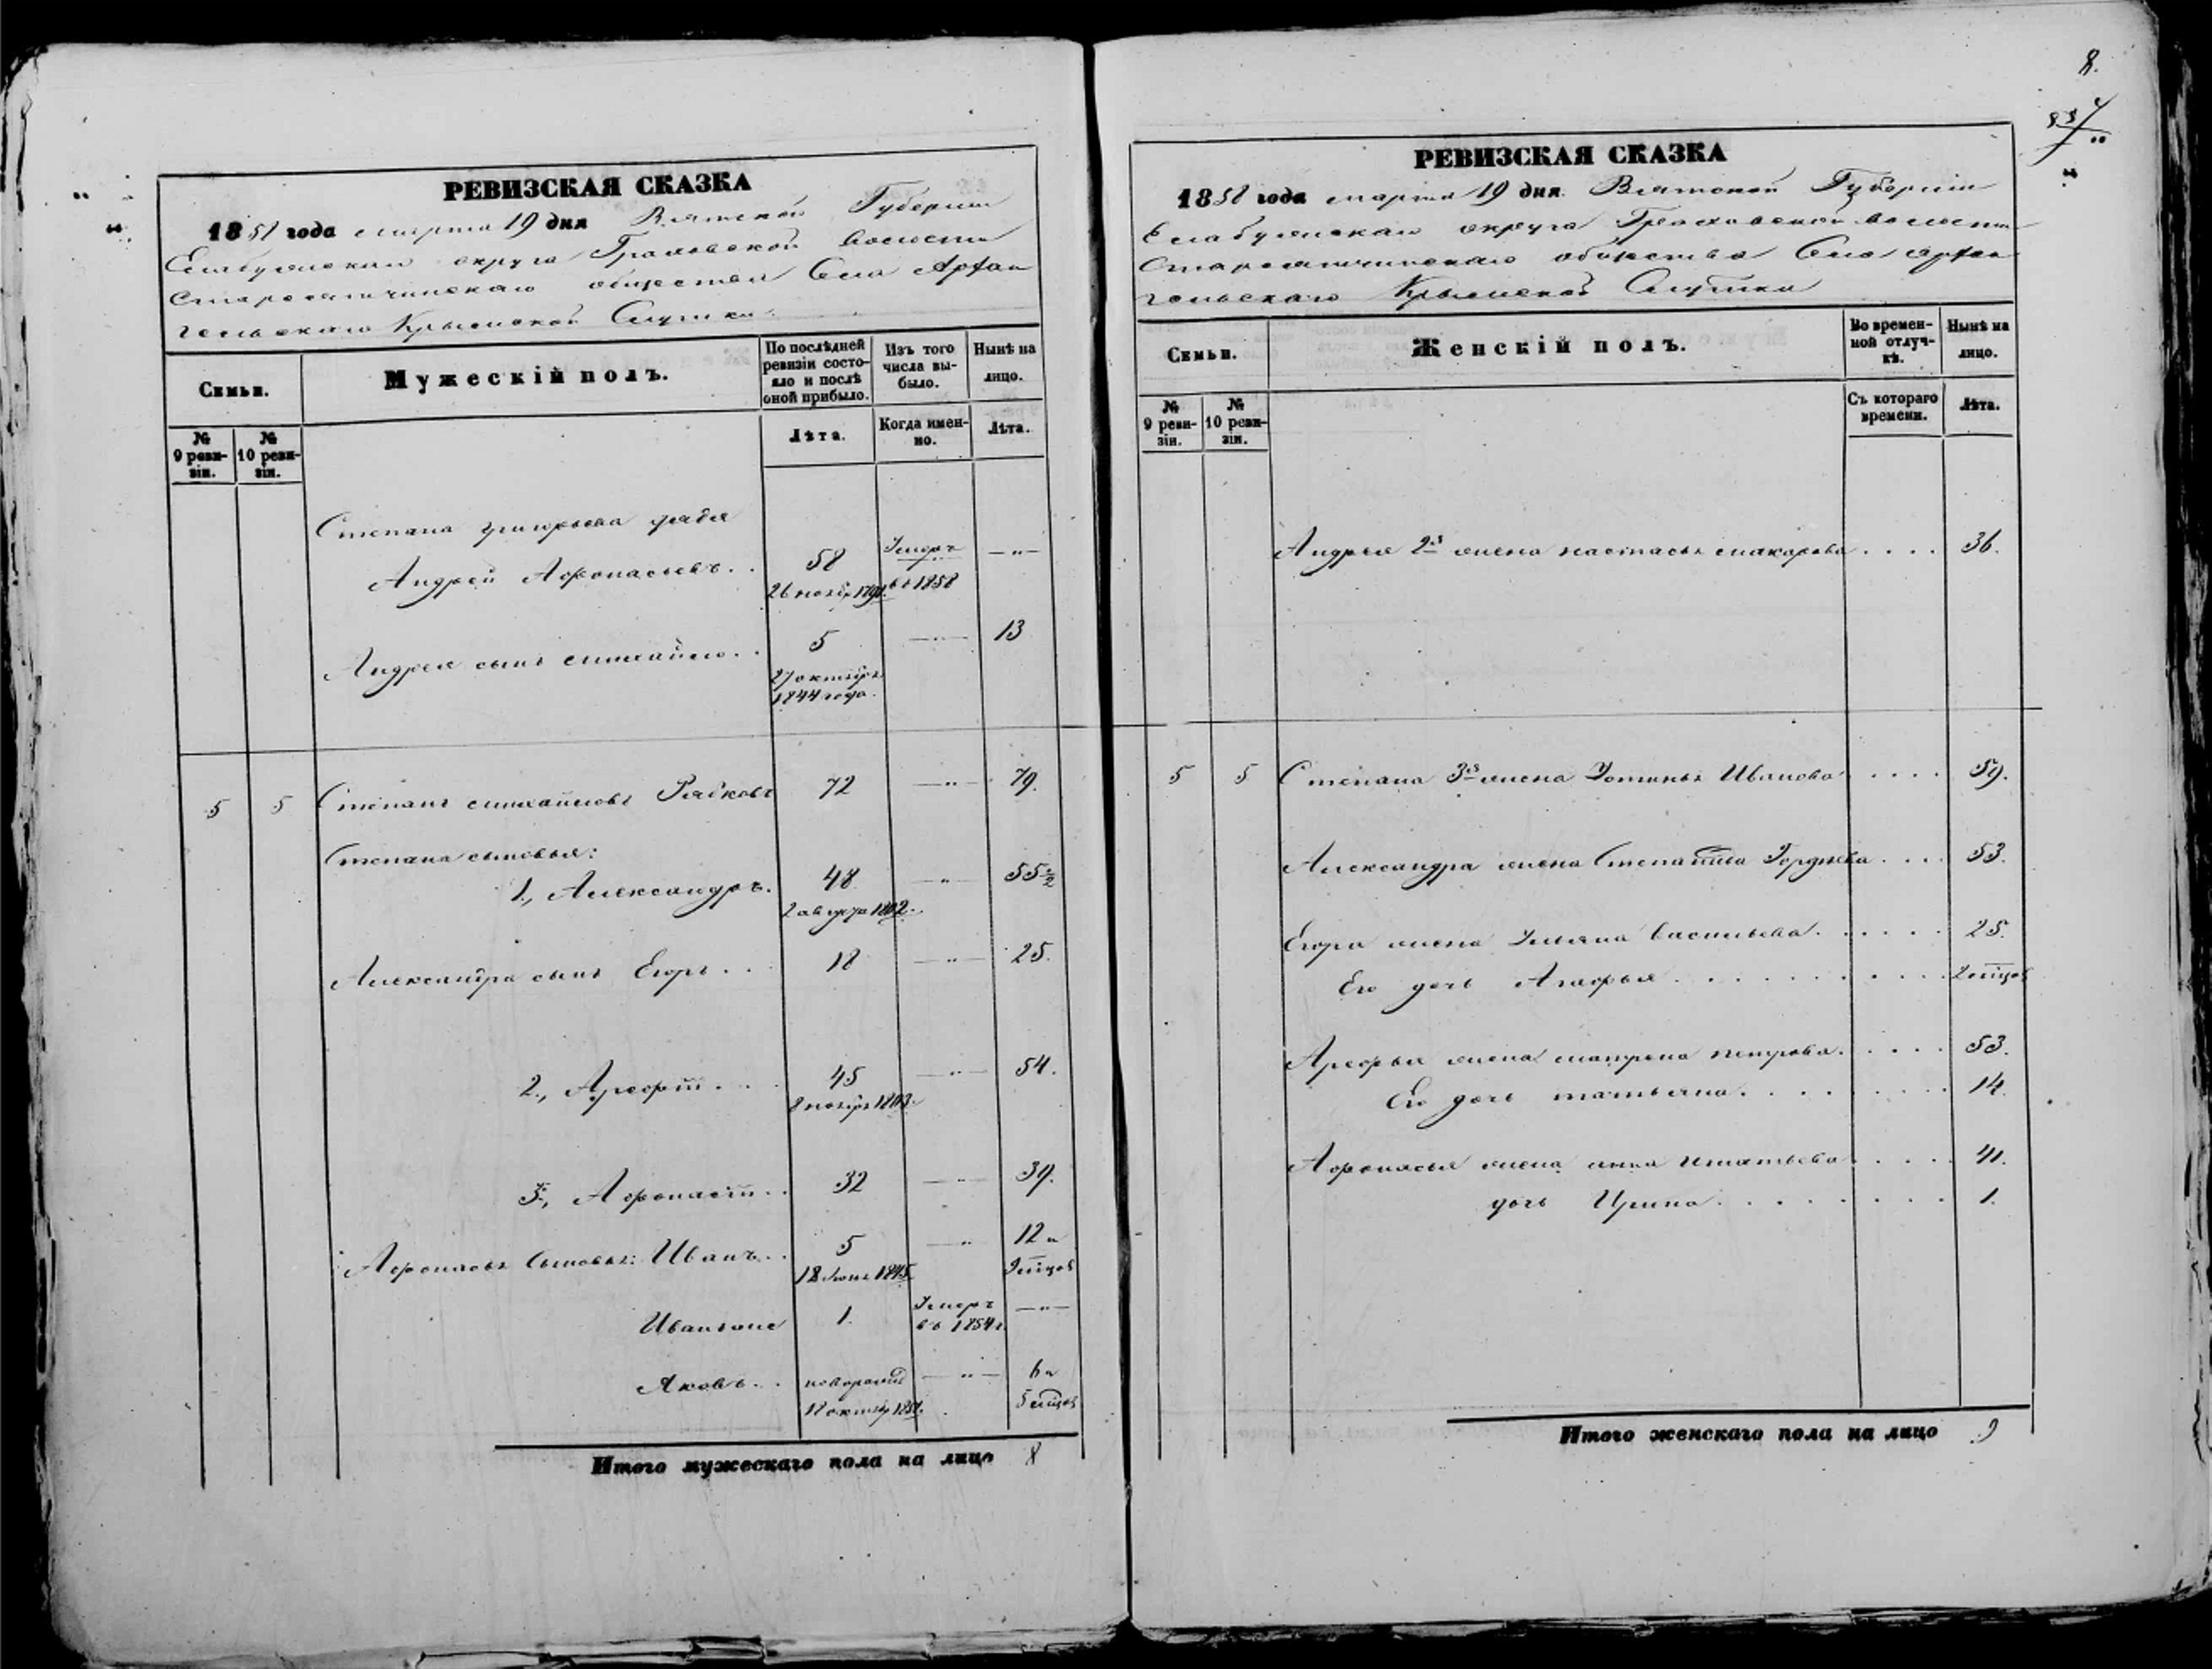 8.
РЕВИЗСКАЯ СКАЗКА
1858 года марта 19 дня Вятской Губернии
Елабужскаго округа Граховской волости
общества Села Архан
гельскаго Крымской Слутки
Семьи.
Мужескій полъ.
По послѣдней ревизіи состояло и послѣ оной прибыло.
Изъ того числа выбыло.
Нынѣ на лицо.
№ 9 ревизіи.
№ 10 ревизіи.
Лѣта.
Когда именно.
Лѣта.
Степана Григорьева дядя
Андрей Афонасьевъ . . 58 Умеръ —„—
26 ноябр въ 1858
Андрея сынъ Михайло . . 5 —„— 13
27 октября
1844 года.
5 5 Степанъ Михайловъ Рябковъ 72 —„— 79.
Степана сыновья:
1., Александръ. 48 „ 55½
2 августа 1802.
Александра сынъ Егоръ . . . 18 —„— 25.
2., Арефій . . . 45 —„— 54.
8 ноябр 1803.
3., Афонасій . . 32 —„— 39.
Афонасья сыновья: Иванъ . . 5 —„ 12 и
18 1845 мѣсцов
Иванъ же 1. Умеръ —„—
въ 1854 г.
Яковъ . . новорожд —„— 6 и
18 октяб 1851. 5 мѣсцов
Итого мужескаго пола на лицо 8
РЕВИЗСКАЯ СКАЗКА
1858 года марта 19 дня Вятской Губерніи
Елабужскаго округа Граховской волости
общества Села Архан
гельскаго Крымской Слутки
Семьи.
Женскій полъ.
Во временной отлучкѣ.
Нынѣ на лицо.
№ 9 ревизіи.
№ 10 ревизіи.
Съ котораго времени.
Лѣта.
Андрея 2я жена Настасья Макарова . . . . 36.
5 5 Степана 3я жена Устинья Иванова . . . . 59.
Александра жена Степанида Гордѣева . . . 53.
Егора жена Ульяна Васильева . . . . . 25.
Его дочь Агафья . . . . . . . . . 2 мѣсцов
Арефья жена Матрена Петрова . . . . . 53.
Его дочь Татьяна . . . . . . . . 14.
Афонасья жена Анна Игнатьева . . . . 41.
дочь Ирина . . . . . . . . 1.
Итого женскаго пола на лицо 9